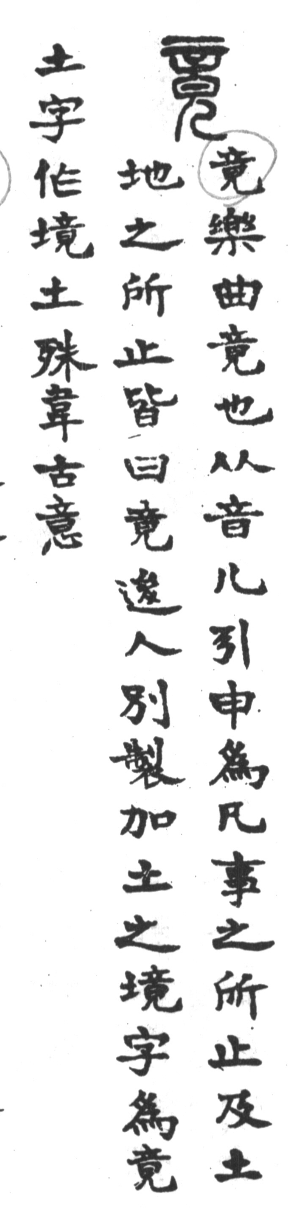 竟
竟樂曲竟也从音儿引申為凡事之所止及土
地之所止皆曰竟後人別製加土之境字為竟
土字作境土殊韋古意